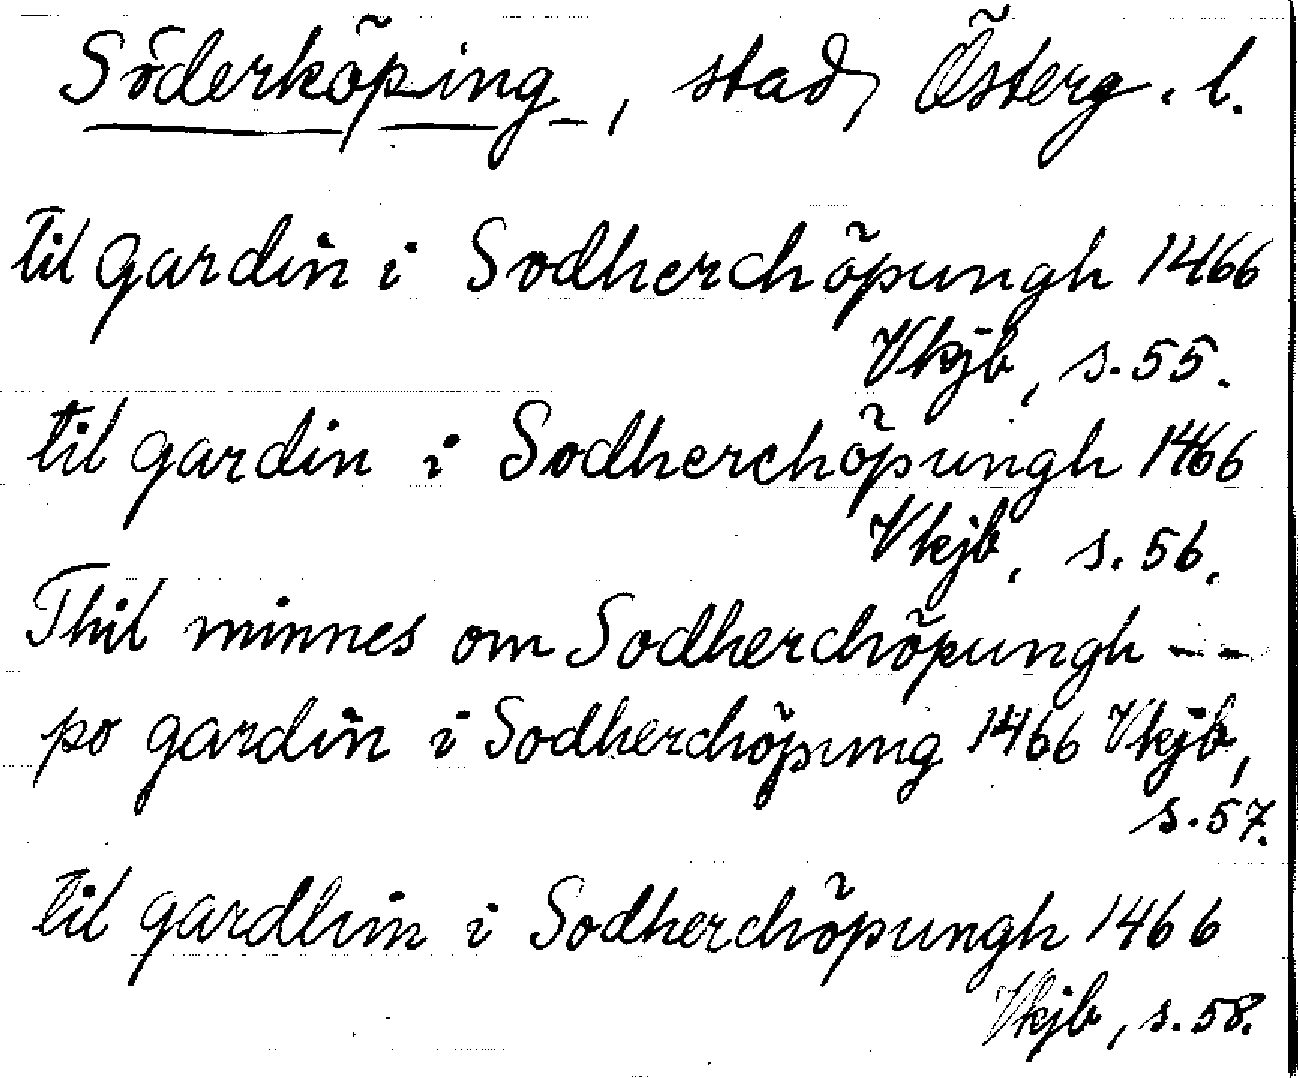 Söderköping, stad, Österg. l.
til gardin i Sodherchöpungh 1466
Vkjb, s. 55.
til gardin i Sodherchöpungh 1466
Vkjb, s. 56.
Thil minnes om Sodherchöpungh - -
po gardin i Sodherchöpung 1466 Vkjb,
s. 57.
til gardhin i Sodherchöpungh 1466
Vkjb, s. 58.